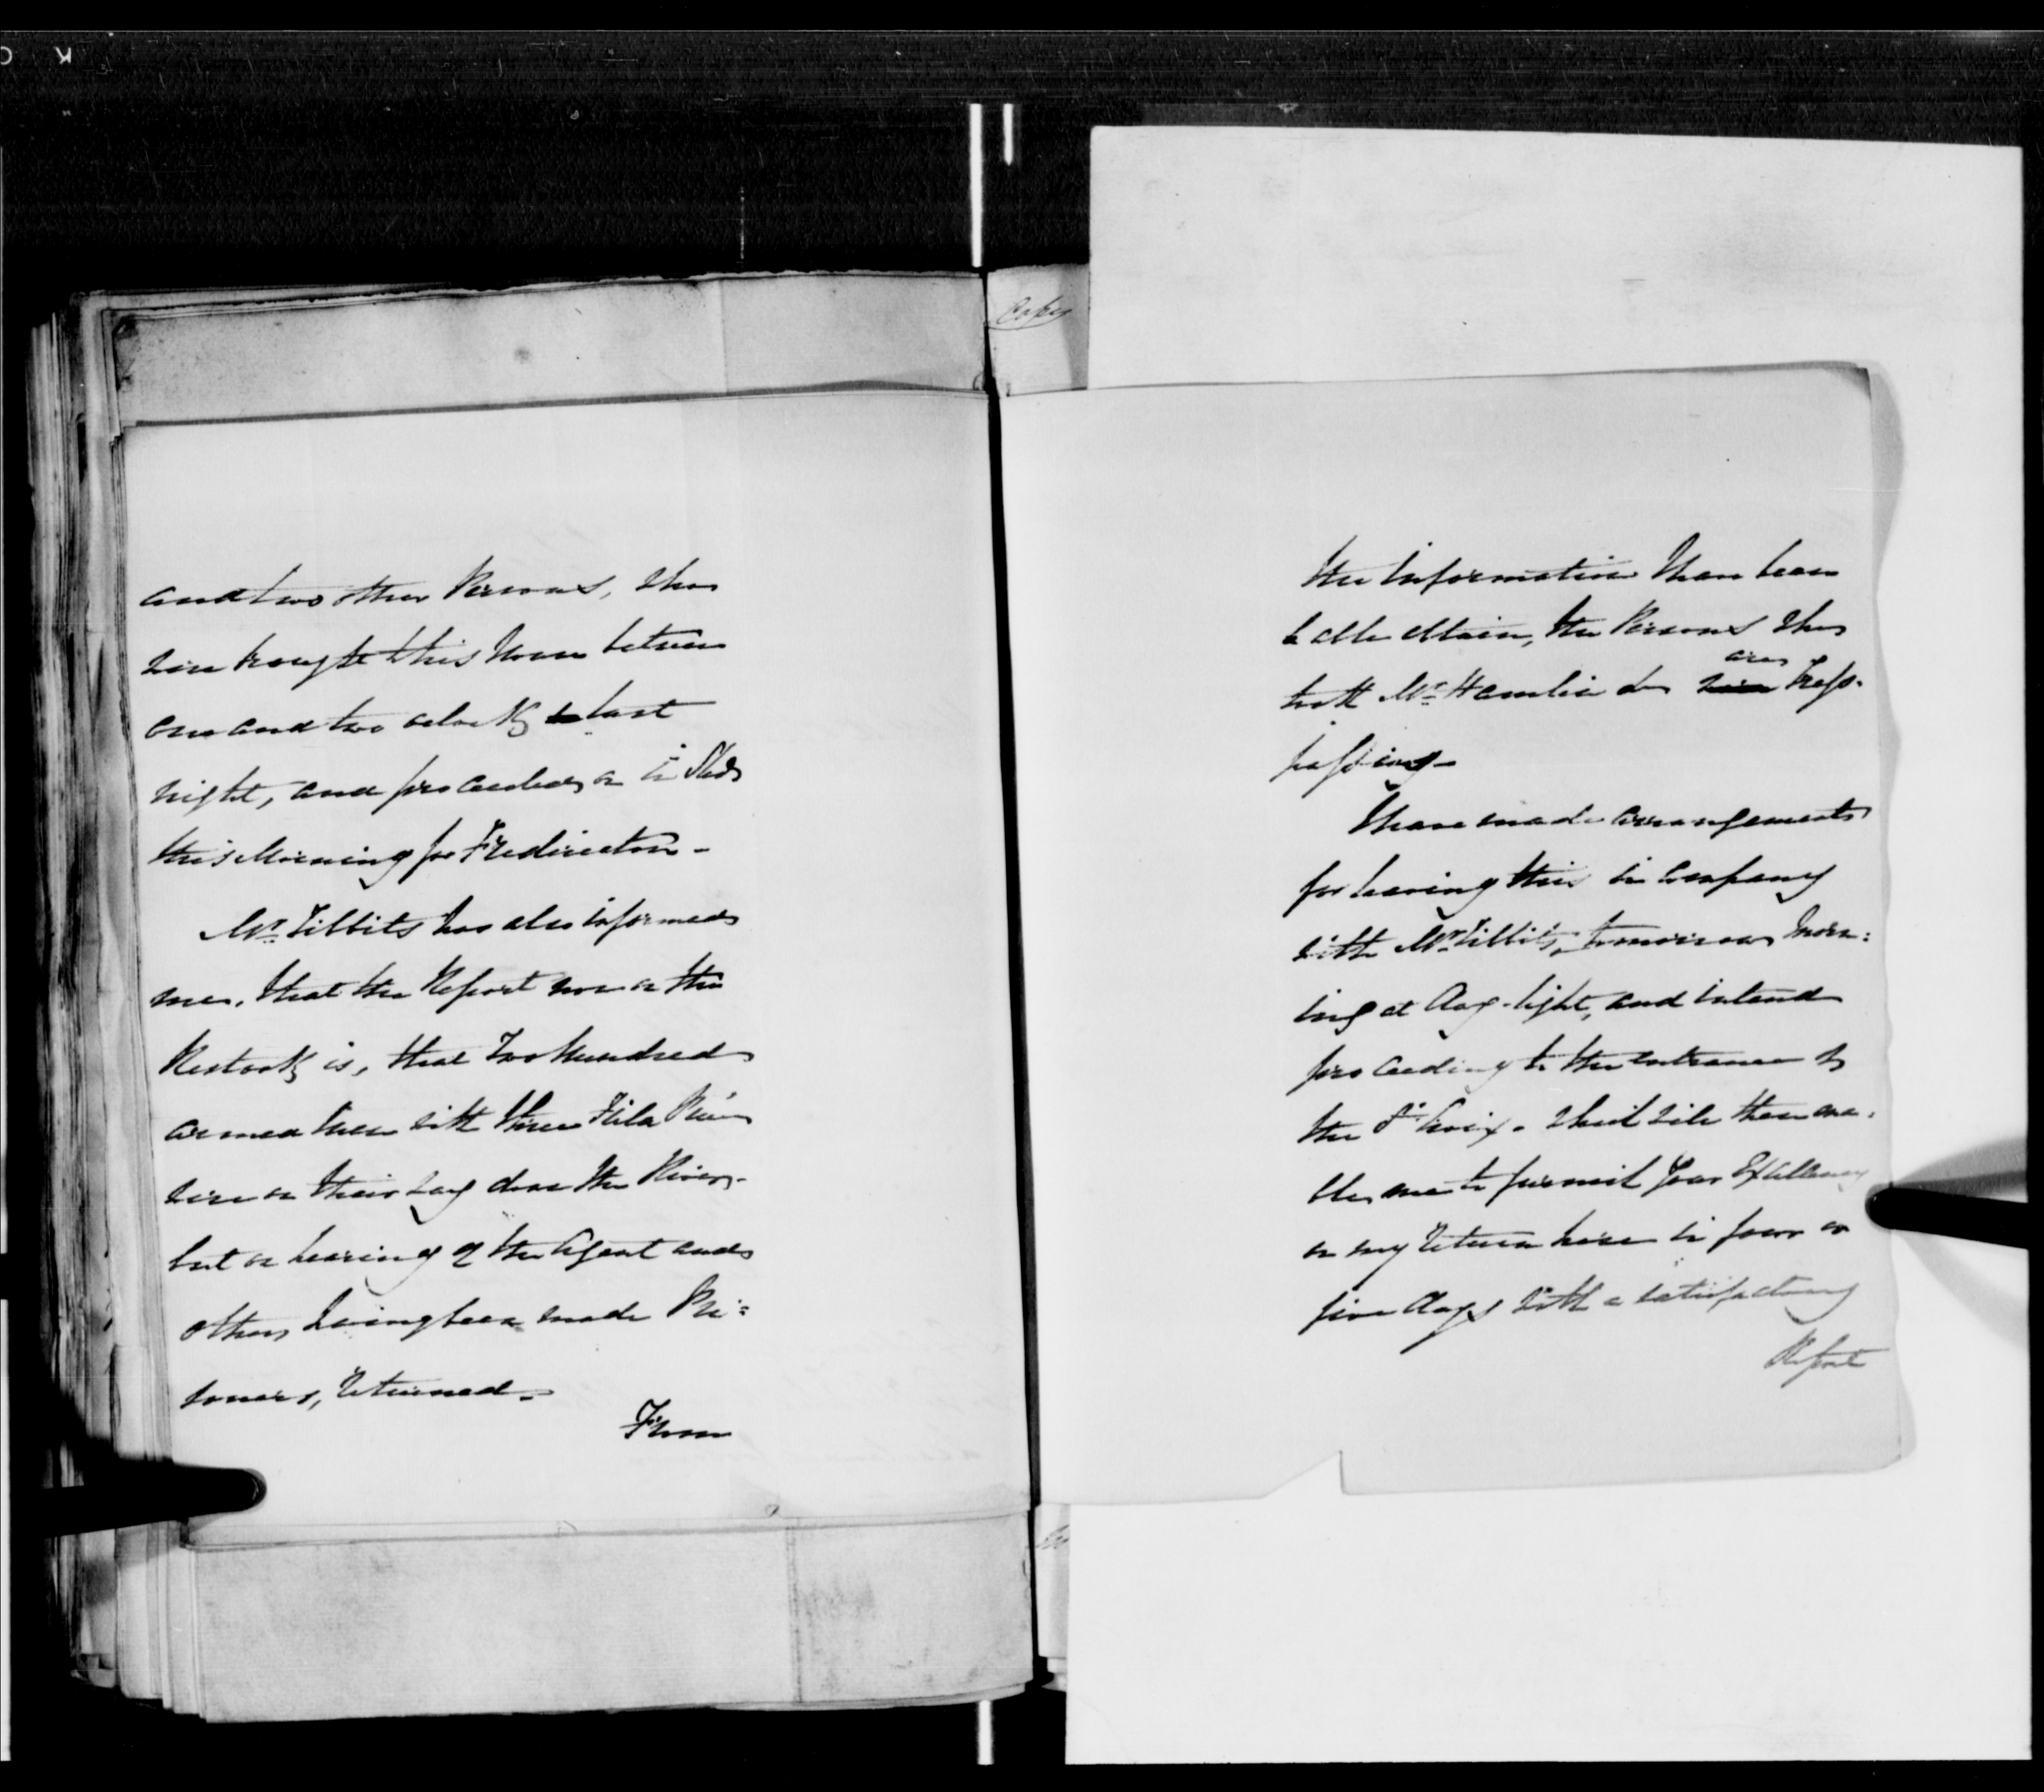 and two other Persons, who
were brought this House between
one and two oclock last
night, and proceeded on in Sleds
this Morning for Fredericton -
Mr. Tibbits has also informed
me, that the Report now on the
Restook is, that Two Hundred
armed Men with three Field Pieces
were on their way down the River,
but on hearing of the Agent and
others having been made Pri=
soners, returned -
From
Copy
the information I have been
able obtain, the Persons who
with Mr. Hamlin do were are Tresp-
passing -
I have made arrangements
for leaving this in Company
with Mr. Tibbits, tomorrow morn:
ing at day-light, and intend
proceeding to the entrance of
the St. Croix - which will then ena-
ble me to furnish Your Excellency
on my return here in four or
five days with a satisfactory
Report